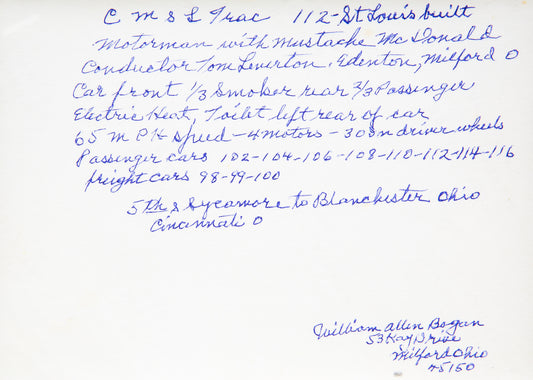 C M & L Trac 112-St Louis built
Motorman with Mustache Mc Donald
Conductor Tom Leverton. Edenton, Milford O
Car front 1/3 Smoker rear 2/3 Passenger
Electric Heat, Toilet left rear of car
65 M P H speed - 4 motors - 30 in driver wheels
Passenger cars 102-104-106-108-110-112-114-116
freight cars 98-99-100
5th & Sycamore to Blanchester Ohio
Cincinnati O
William Allen Bogan
53 Kay Drive
Milford Ohio
45150